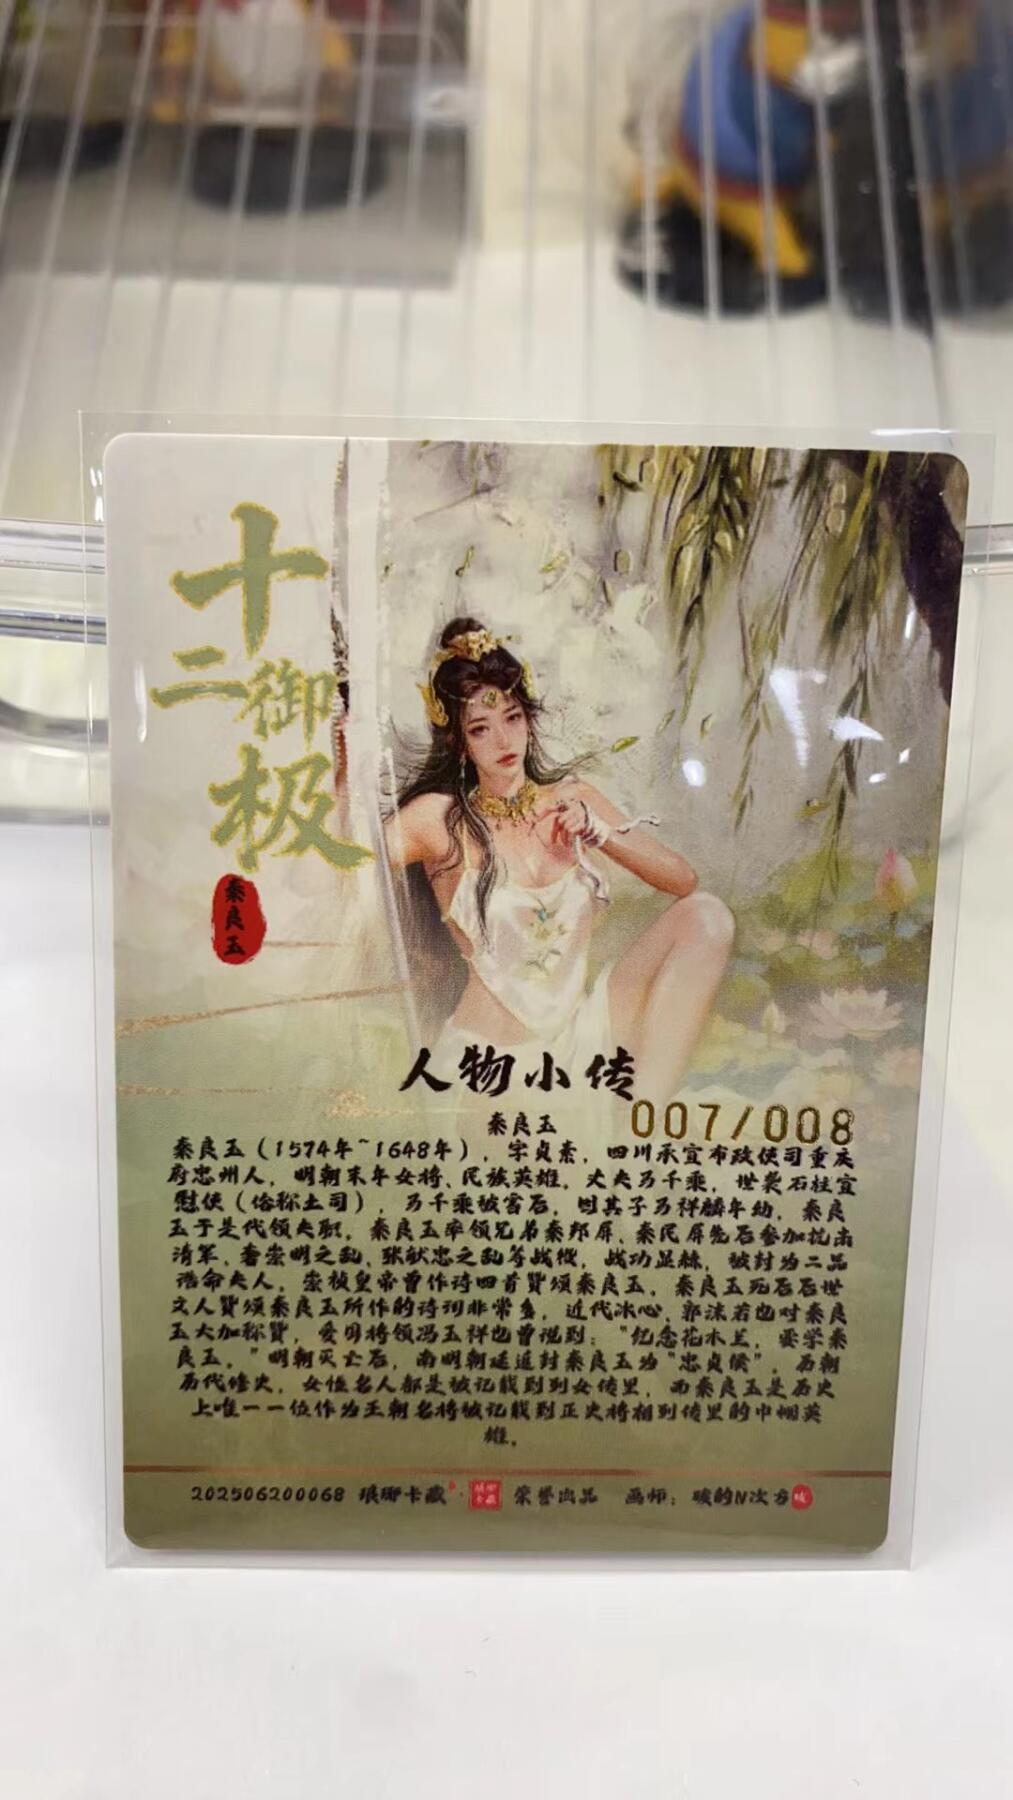 十
二御
极
秦良玉
人物小传
007/008
秦良玉
秦良玉（1574年~1648年），字贞素，四川承宣布政使司重庆
府忠州人，明朝末年女将、民族英雄，丈夫马千乘，世袭石柱宣
慰使（俗称土司），马千乘被害后，因其子马祥麟年幼，秦良
玉于是代领夫职，秦良玉率领兄弟秦邦屏、秦民屏先后参加抗击
清军、奢崇明之乱、张献忠之乱等战役，战功显赫，被封为二品
诰命夫人，崇祯皇帝曾作诗四首赞颂秦良玉，秦良玉死后后世
文人赞颂秦良玉所作的诗词非常多，近代冰心、郭沫若也对秦良
玉大加称赞，爱国将领冯玉祥也曾说到："纪念花木兰，要学秦
良玉。"明朝灭亡后，南明朝廷追封秦良玉为"忠贞侯"，历朝
历代修史，女性名人都是被记载到列女传里，而秦良玉是历史
上唯一一位作为王朝名将被记载到正史将相列传里的巾帼英
雄。
202506200068 琅琊卡藏 · 琅琊卡藏 荣誉出品 画师：玻的N次方